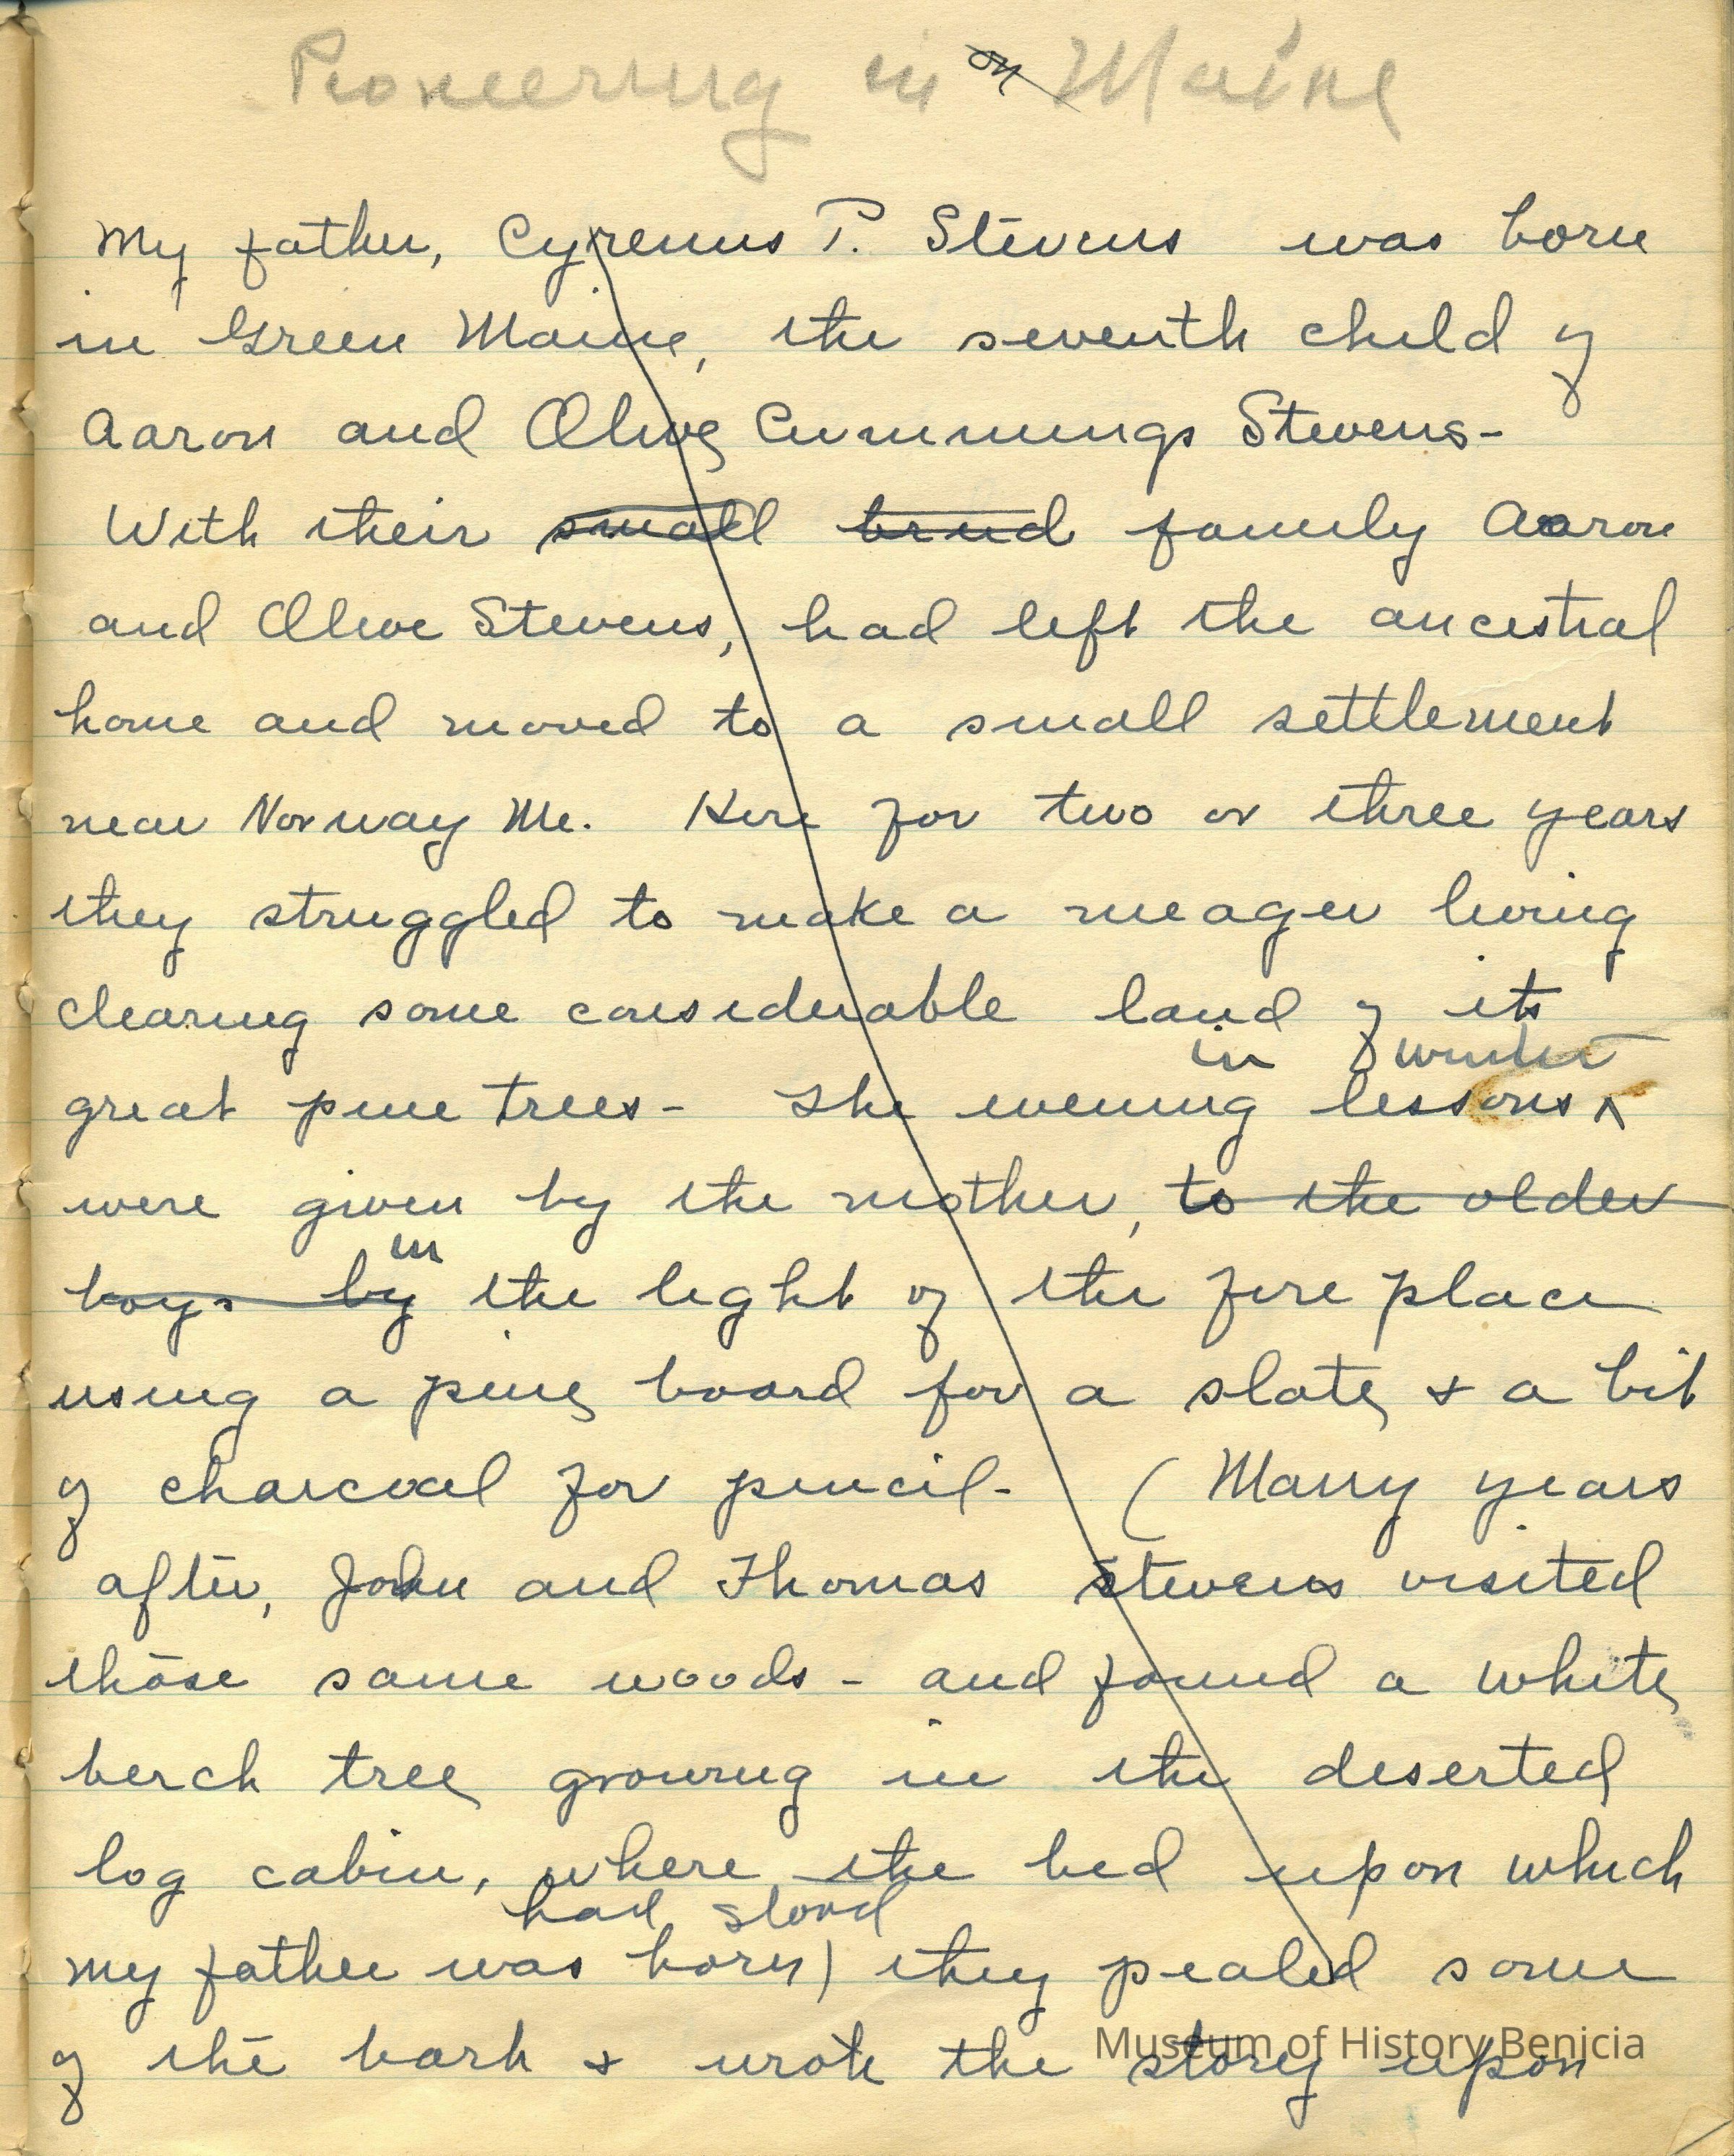 Pioneering in on Maine
My father, Cyrenus P. Stevens was born
in Green Maine, the seventh child of
Aaron and Olive Cummings Stevens-
With their small family Aaron
and Olive Stevens, had left the ancestral
home and moved to a small settlement
near Norway Me. Here for two or three years
they struggled to make a meager living
clearing some considerable land of its
in winter
great pine trees- The evening lessons ^
were given by the mother, to the older
in
boys by the light of the fire place
using a pine board for a slate & a bit
of charcoal for pencil- (Many years
after, John and Thomas Stevens visited
those same woods - and found a white
berch tree growing in the deserted
log cabin, where the bed upon which
had stood
my father was born) they pealed some
of the bark & wrote the story upon
Museum of History Benicia